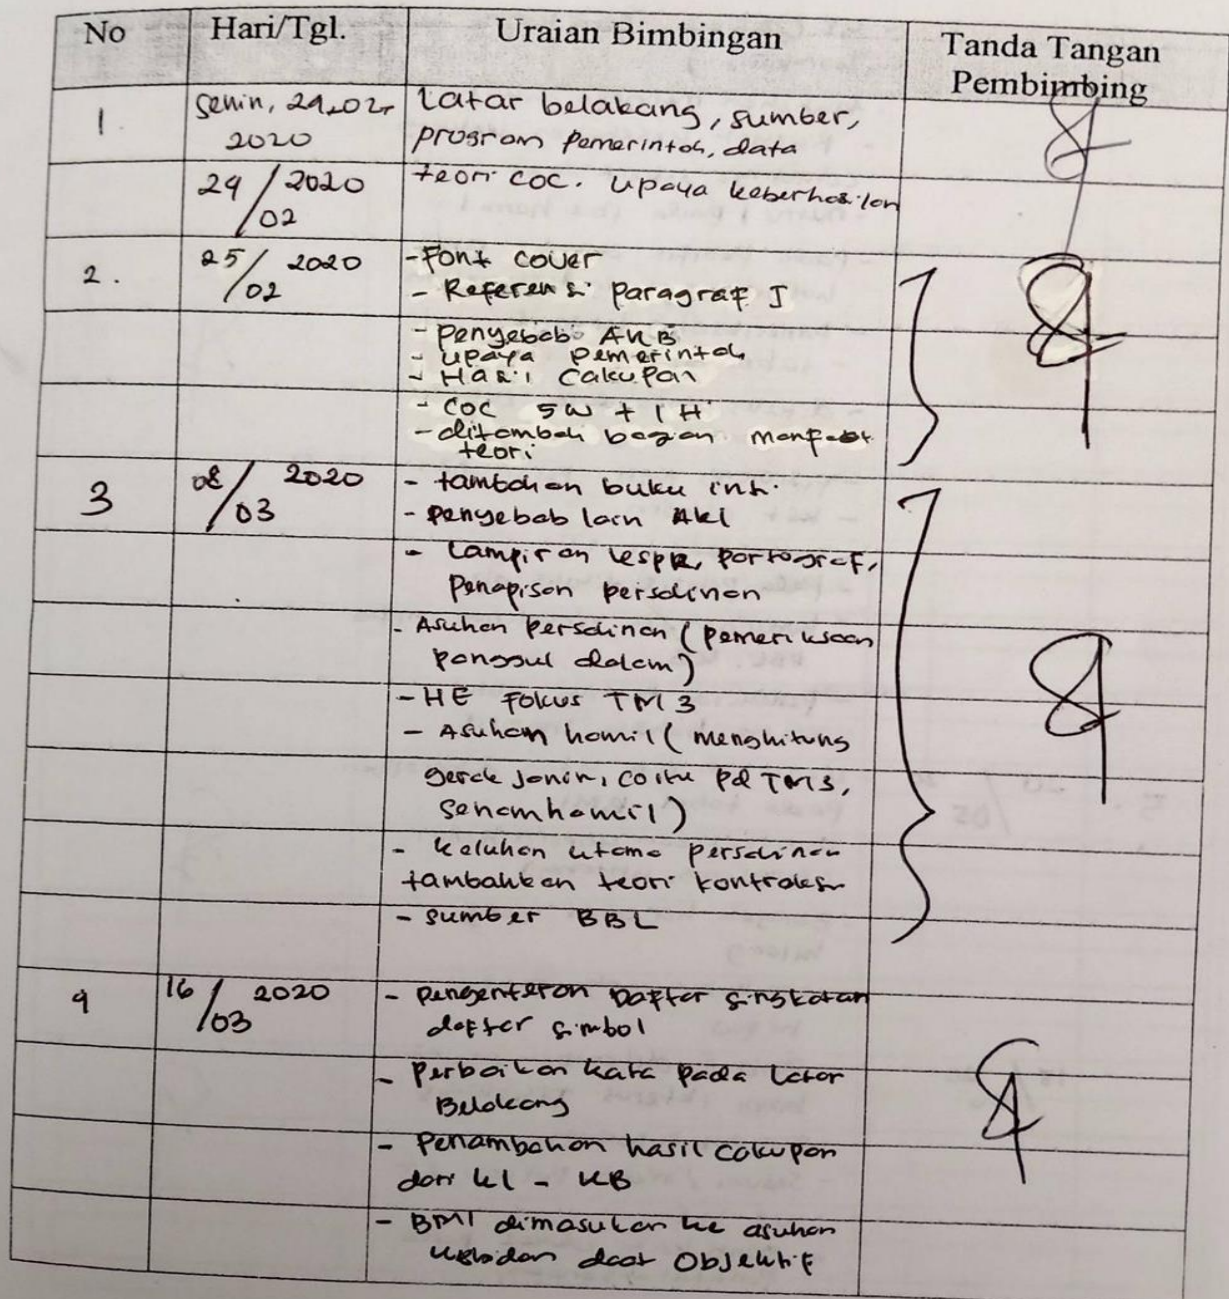 No Hari/Tgl. Uraian Bimbingan Tanda Tangan Pembimbing
1 Senin, 24.02. 2020 Latar belakang, sumber,
program pemerintah, data
24/02 2020 teori COC. upaya keberhasilan
2. 25/02 2020 - Font cover
- Referensi Paragraf I
- penyebab AKB
- upaya pemerintah
- Hasil Cakupan
- COC 5W + 1H
- ditambah bagian manfaat
teori
3 08/03 2020 - tambahan buku
- penyebab lain AKI
- Lampiran partograf,
Penapisan persalinan
- Asuhan persalinan (pemeriksaan
panggul dalam)
- HE Fokus TM 3
- Asuhan hamil (menghitung
gerak janin, coitu pd TM3,
senam hamil)
- keluhan utama persalinan
tambahkan teori kontraksi
- sumber BBL
4 16/03 2020 - Daftar singkatan
daftar simbol
- Perbaikan kata pada Latar
Belakang
- Penambahan hasil cakupan
dari K1 - KB
- BMI dimasukan ke asuhan
Objektif